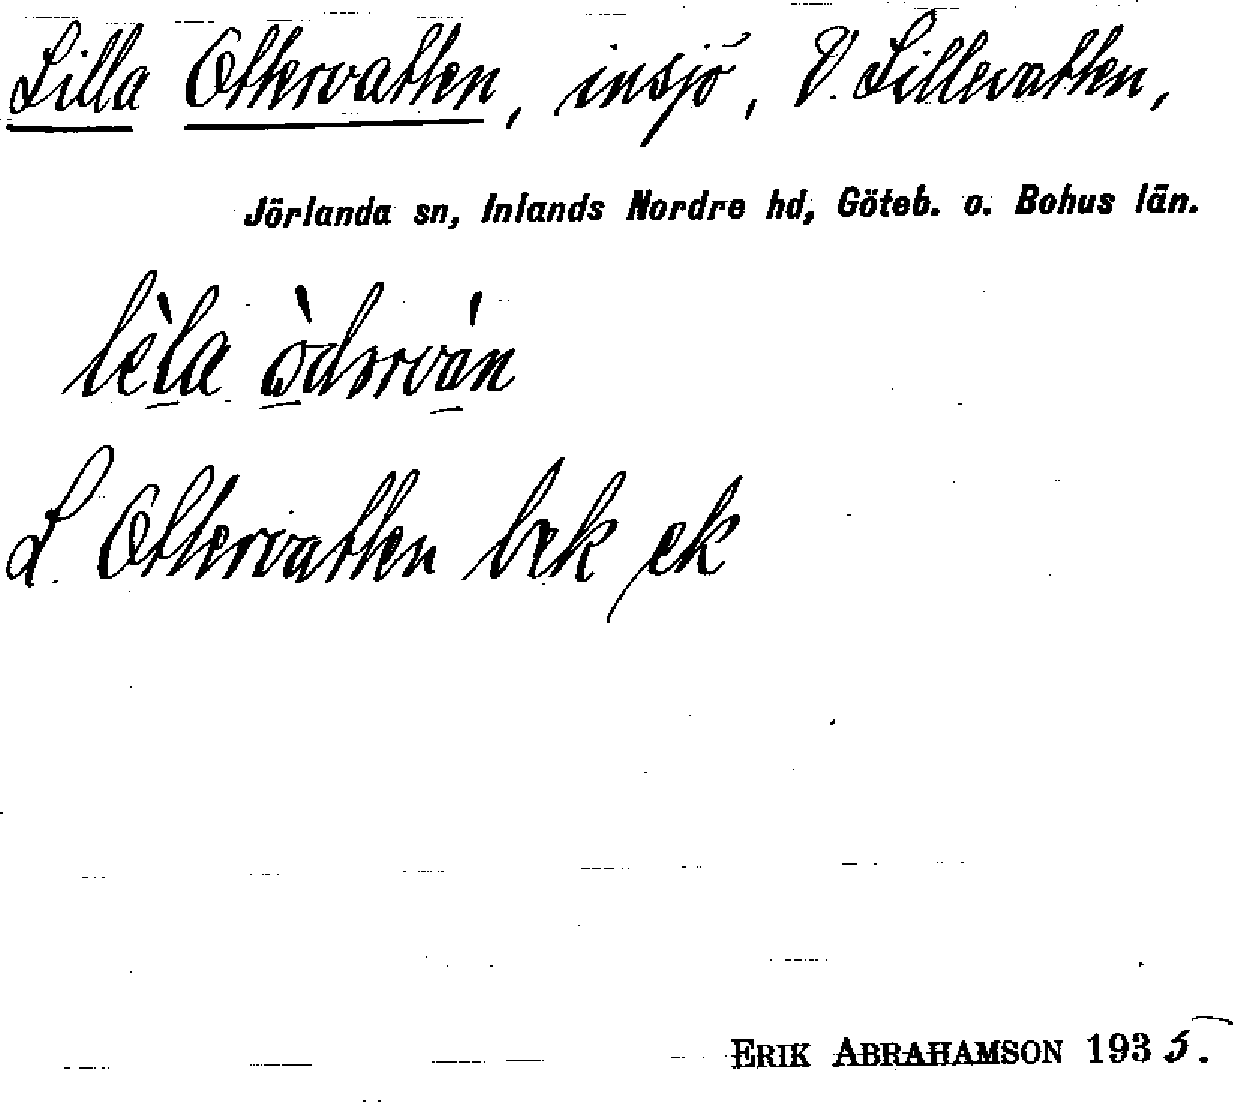 Lilla Ottervatten, insjö, V. Lillevatten,
Jörlanda sn, Inlands Nordre hd, Göteb. o. Bohus län.
L. Ottervatten bek ek
ERIK ABRAHAMSON 1935.